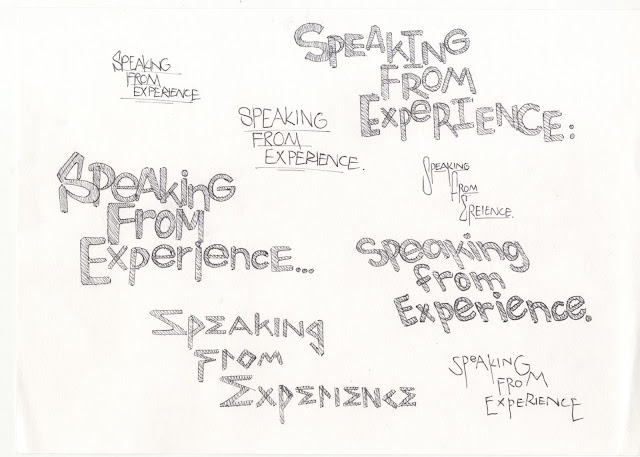 SPEAKING
FROM
EXPERIENCE
SPEAKING
FROM
ExpeRIENCE.
SPEAKING
FROM
EXPERIENCE.
SpeAKinG
FROM
ExperiencE...
SPEAKING
FROM
speaking
from
Experience.
SpEAKING
FROM
ExpERIENCE
SpeAKING
FROM
ExpERIENCE